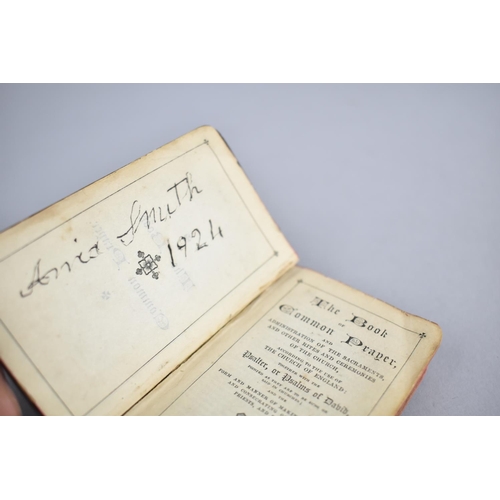 Annie Smith
1924
The Book
OF
Common Prayer,
AND
ADMINISTRATION OF THE SACRAMENTS,
AND OTHER RITES AND CEREMONIES
OF THE CHURCH,
ACCORDING TO THE USE OF
THE CHURCH OF ENGLAND:
TOGETHER WITH THE
Psalter, or Psalms of David,
POINTED AS THEY ARE TO BE SUNG OR
SAID IN CHURCHES;
AND THE
FORM AND MANNER OF
AND CONSECRATING
PRIESTS, AND